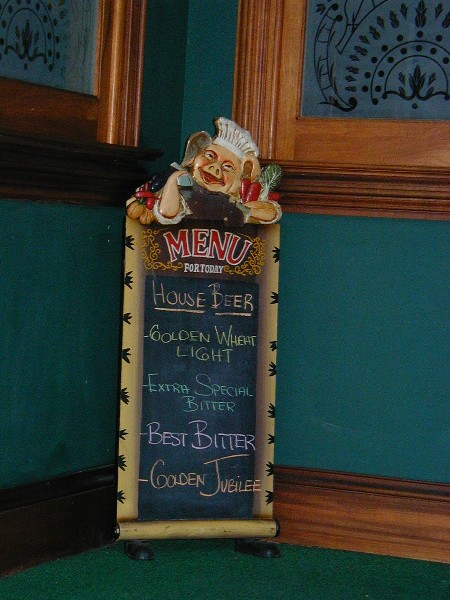 MENU
FOR TODAY
HOUSE BEER
-GOLDEN WHEAT
LIGHT
-EXTRA SPECIAL
BITTER
-BEST BITTER
-GOLDEN JUBILEE